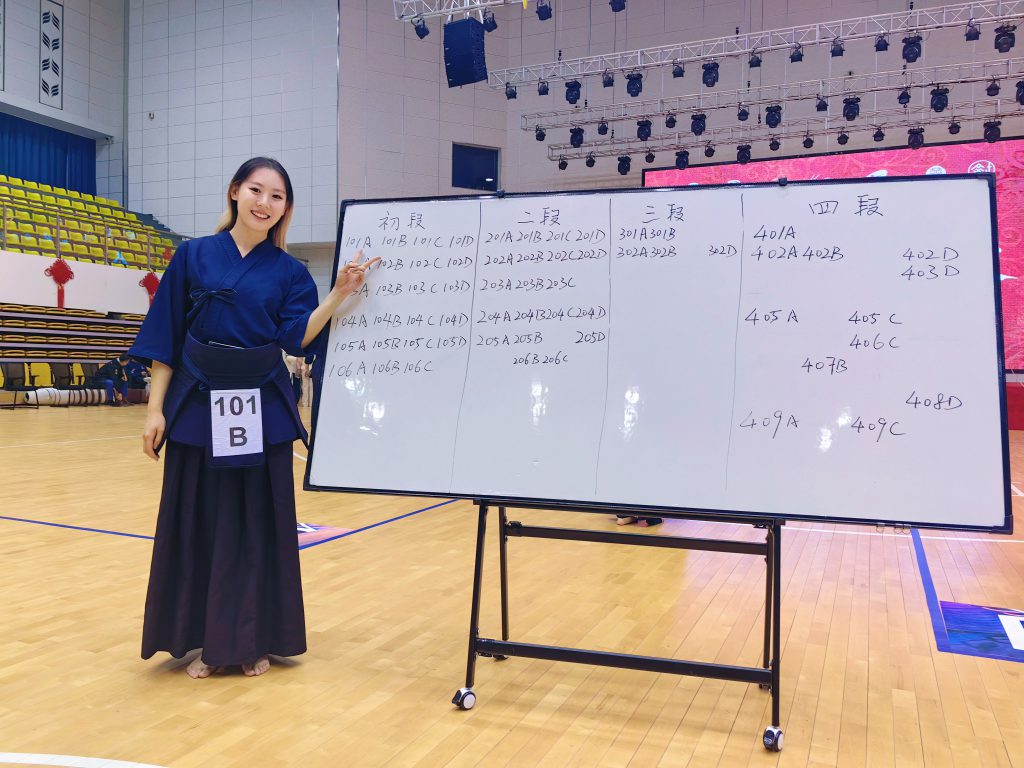 初段 二段 三段 四段
101A 101B 101C 101D 201A 201B 201C 201D 301A 301B 401A
102B 102C 102D 202A 202B 202C 202D 302A 302B 302D 402A 402B 402D
403D
103B 103C 103D 203A 203B 203C
104A 104B 104C 104D 204A 204B 204C 204D 405A 405C
105A 105B 105C 105D 205A 205B 205D 406C
106A 106B 106C 206B 206C 407B
408D
409A 409C
101
B
剑